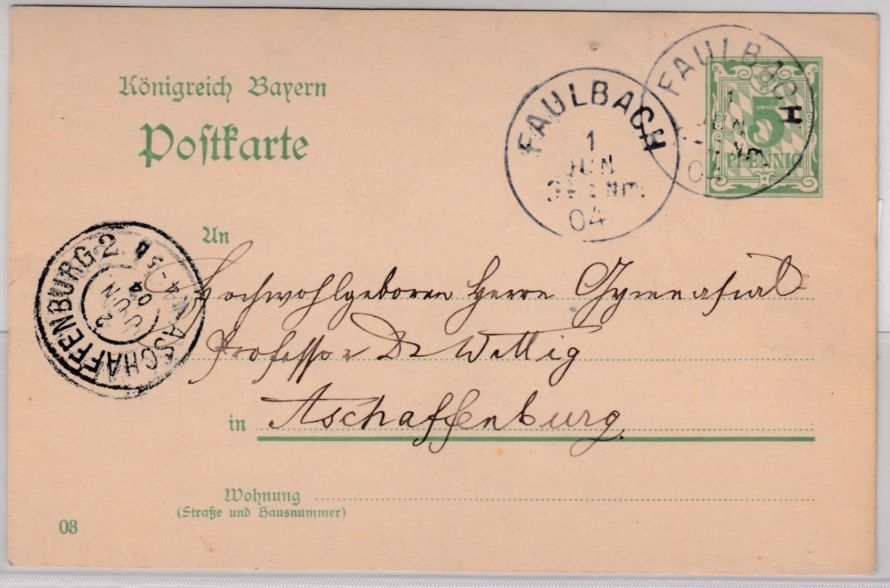 Königreich Bayern
Postkarte
FAULBACH
1
JUN
Nm.
04
FAULBACH
1
JUN
Nm.
04
5
PFENNIG
ASCHAFFENBURG 2.
2
JUN
04
An
Hochwohlgeboren Herrn Gymnasial
Professor Dr Wettig
in Aschaffenburg.
Wohnung
(Straße und Hausnummer)
03